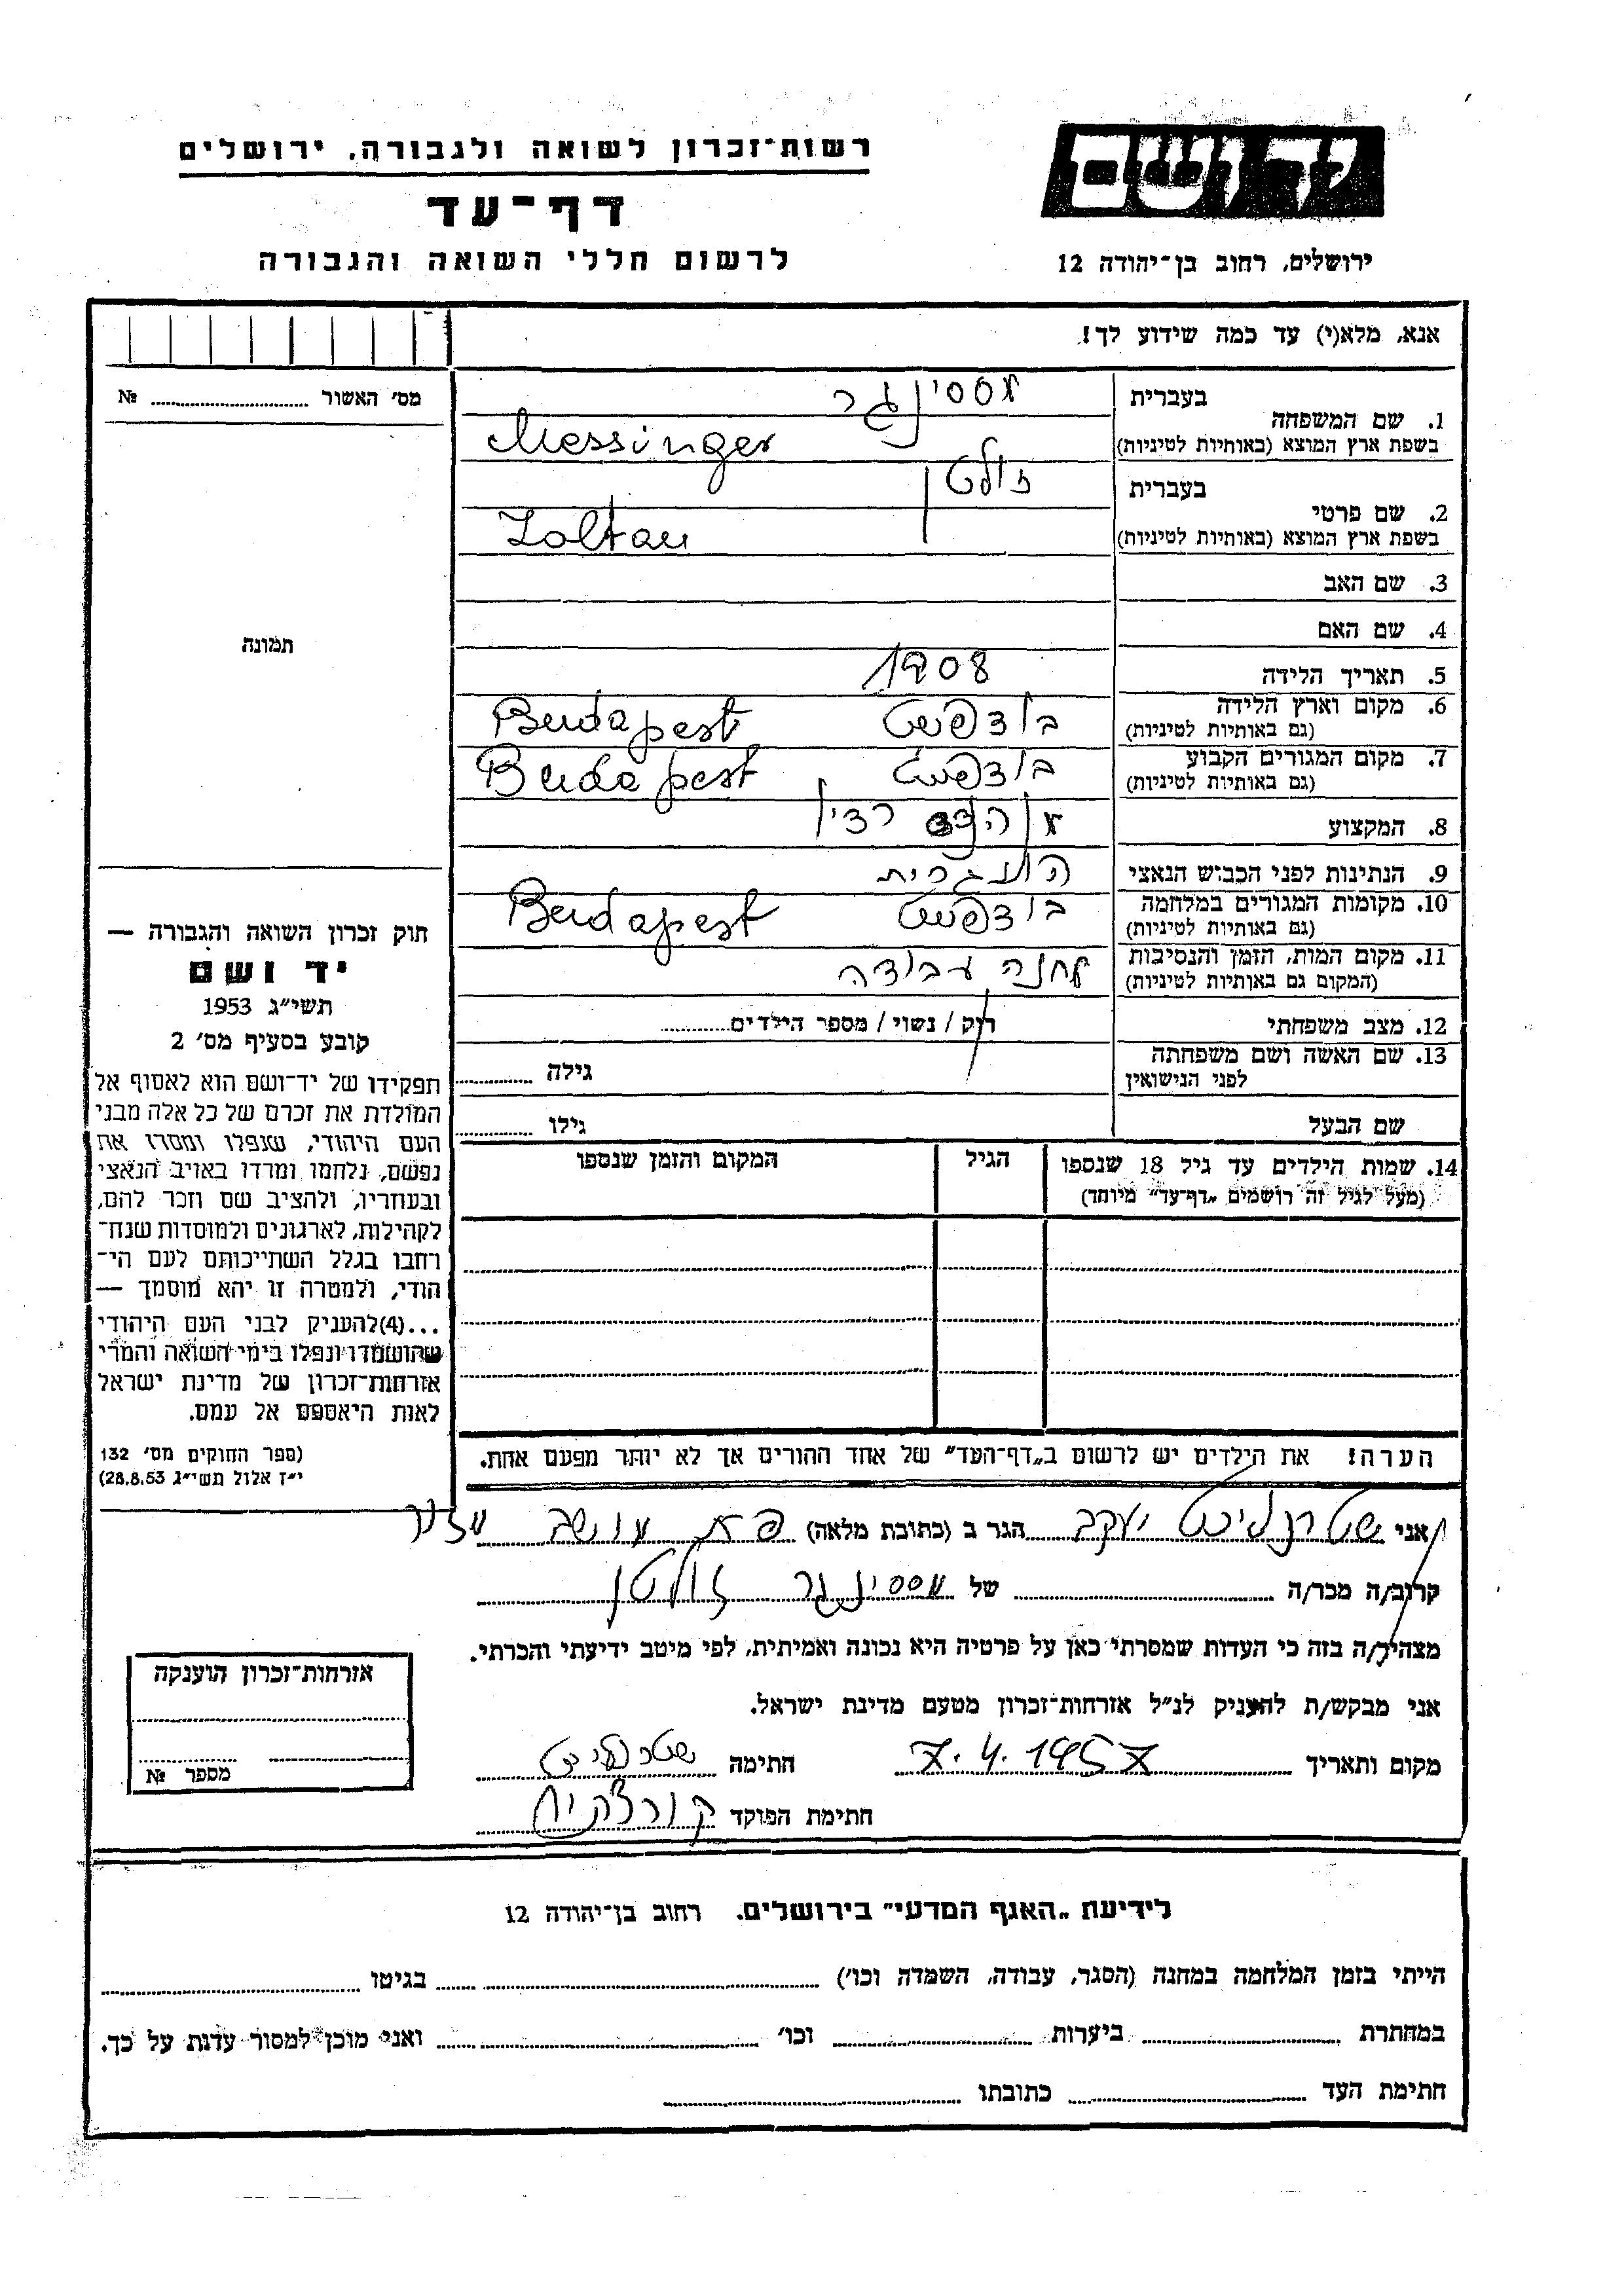 יד ושם
רשות־זכרון לשואה ולגבורה, ירושלים
דף־עד
לרשום חללי השואה והגבורה
ירושלים, רחוב בן־יהודה 12
אנא, מלא(י) עד כמה שידוע לך!
מס׳ האשור № ........
תמונה
1. שם המשפחה
בעברית מסינגר
בשפת ארץ המוצא (באותיות לטיניות) Messinger
2. שם פרטי
בעברית זולטן
בשפת ארץ המוצא (באותיות לטיניות) Zoltan
3. שם האב
4. שם האם
5. תאריך הלידה 1908
6. מקום וארץ הלידה בודפשט Budapest
(גם באותיות לטיניות)
7. מקום המגורים הקבוע בודפשט Budapest
(גם באותיות לטיניות)
8. המקצוע
9. הנתינות לפני הכבוש הנאצי הונגרית
10. מקומות המגורים במלחמה בודפשט Budapest
(גם באותיות לטיניות)
11. מקום המות, הזמן והנסיבות מחנה עבודה
(המקום גם באותיות לטיניות)
12. מצב משפחתי רוק / נשוי / מספר הילדים........
13. שם האשה ושם משפחתה גילה ........
לפני הנישואין
שם הבעל גילו ........
14. שמות הילדים עד גיל 18 שנספו הגיל המקום והזמן שנספו
(מעל לגיל זה רושמים „דף־עד״ מיוחד)
הערה! את הילדים יש לרשום ב„דף־העד״ של אחד ההורים אך לא יותר מפעם אחת.
חוק זכרון השואה והגבורה —
יד ושם
תשי״ג 1953
קובע בסעיף מס׳ 2
תפקידו של יד־ושם הוא לאסוף אל
המולדת את זכרם של כל אלה מבני
העם היהודי, שנפלו ומסרו את
נפשם, נלחמו ומרדו באויב הנאצי
ובעוזריו, ולהציב שם וזכר להם,
לקהילות, לארגונים ולמוסדות שנח־
רבו בגלל השתייכותם לעם הי־
הודי, ולמטרה זו יהא מוסמך —
...(4)להעניק לבני העם היהודי
שהושמדו ונפלו בימי השואה והמרי
אזרחות־זכרון של מדינת ישראל
לאות היאספם אל עמם.
(ספר החוקים מס׳ 132
י״ז אלול תשי״ג 28.8.53)
אני יעקב הגר ב (כתובת מלאה)
קרוב/ה מכר/ה ........ של מסינגר זולטן
מצהיר/ה בזה כי העדות שמסרתי כאן על פרטיה היא נכונה ואמיתית, לפי מיטב ידיעתי והכרתי.
אני מבקש/ת להעניק לנ״ל אזרחות־זכרון מטעם מדינת ישראל.
מקום ותאריך 7.4.1957 חתימה
חתימת הפוקד
אזרחות־זכרון הוענקה
מספר №
לידיעת „האגף המדעי״ בירושלים. רחוב בן־יהודה 12
הייתי בזמן המלחמה במחנה (הסגר, עבודה, השמדה וכו׳) ........ בגיטו ........
במחתרת ........ ביערות ........ וכו׳ ........ ואני מוכן למסור עדות על כך.
חתימת העד ........ כתובתו ........